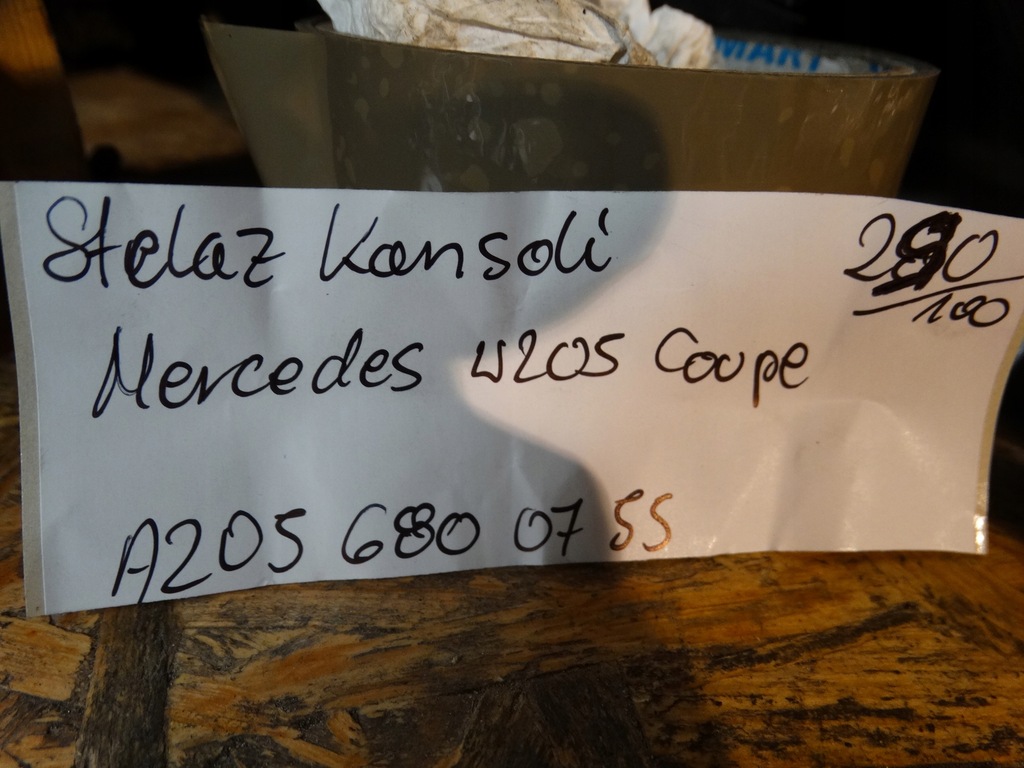 Stelaz Konsoli
Mercedes W205 Coupe
A205 680 07 55
100